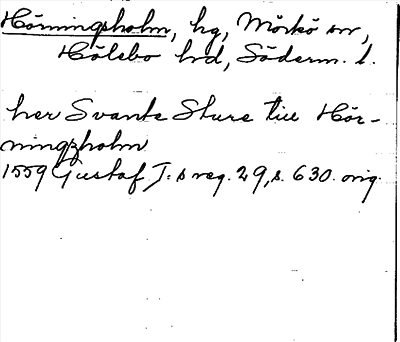 Hörningsholm, hg, Mörkö sn,
Hölebo hd, Söderm. l.
her Svante Sture till Hör-
ningzholm
1559 Gustaf I:s reg. 29, s. 630. orig.